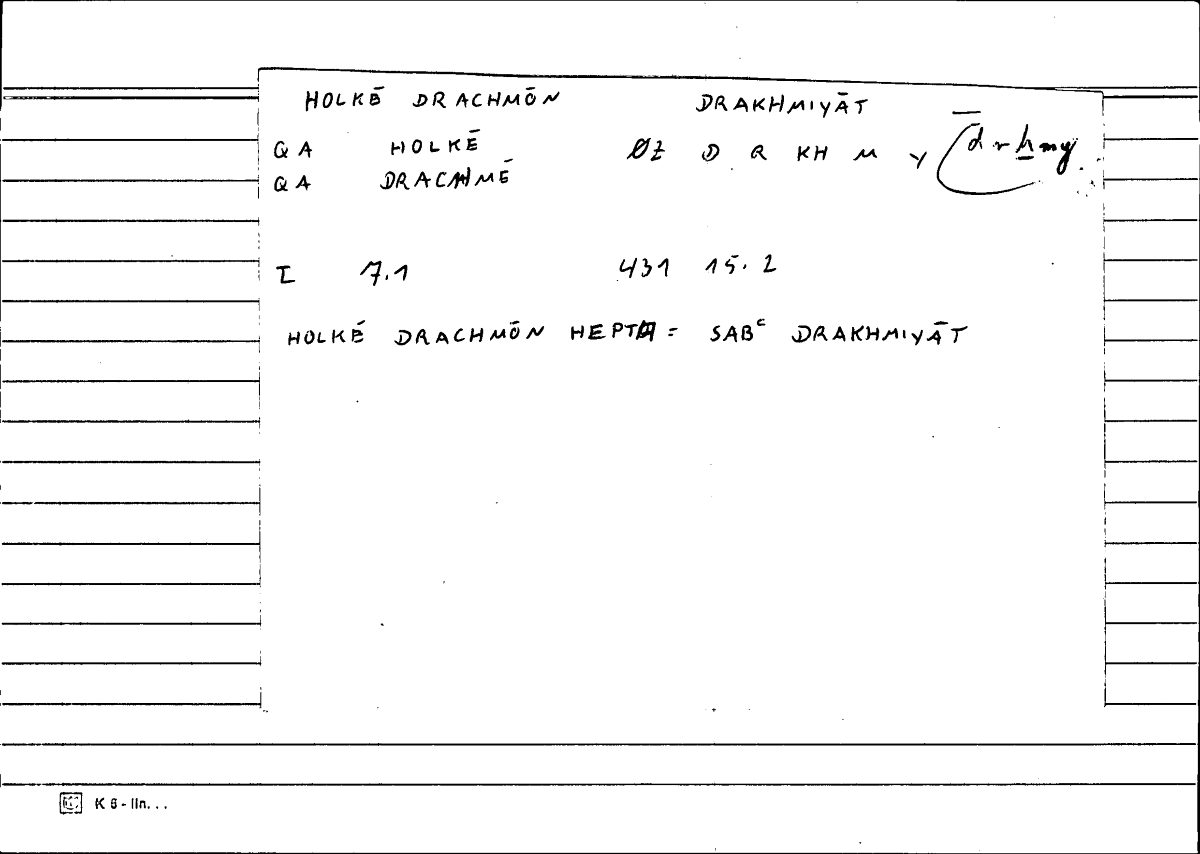 HOLKĒ DRACHMŌN DRAKHMIYĀT
QA HOLKĒ ØZ D R KH M Y drḫmy
QA DRACHMĒ
I 7.1 431 15.2
HOLKĒ DRACHMŌN HEPTA = SABᶜ DRAKHMIYĀT
K 6 - lin...